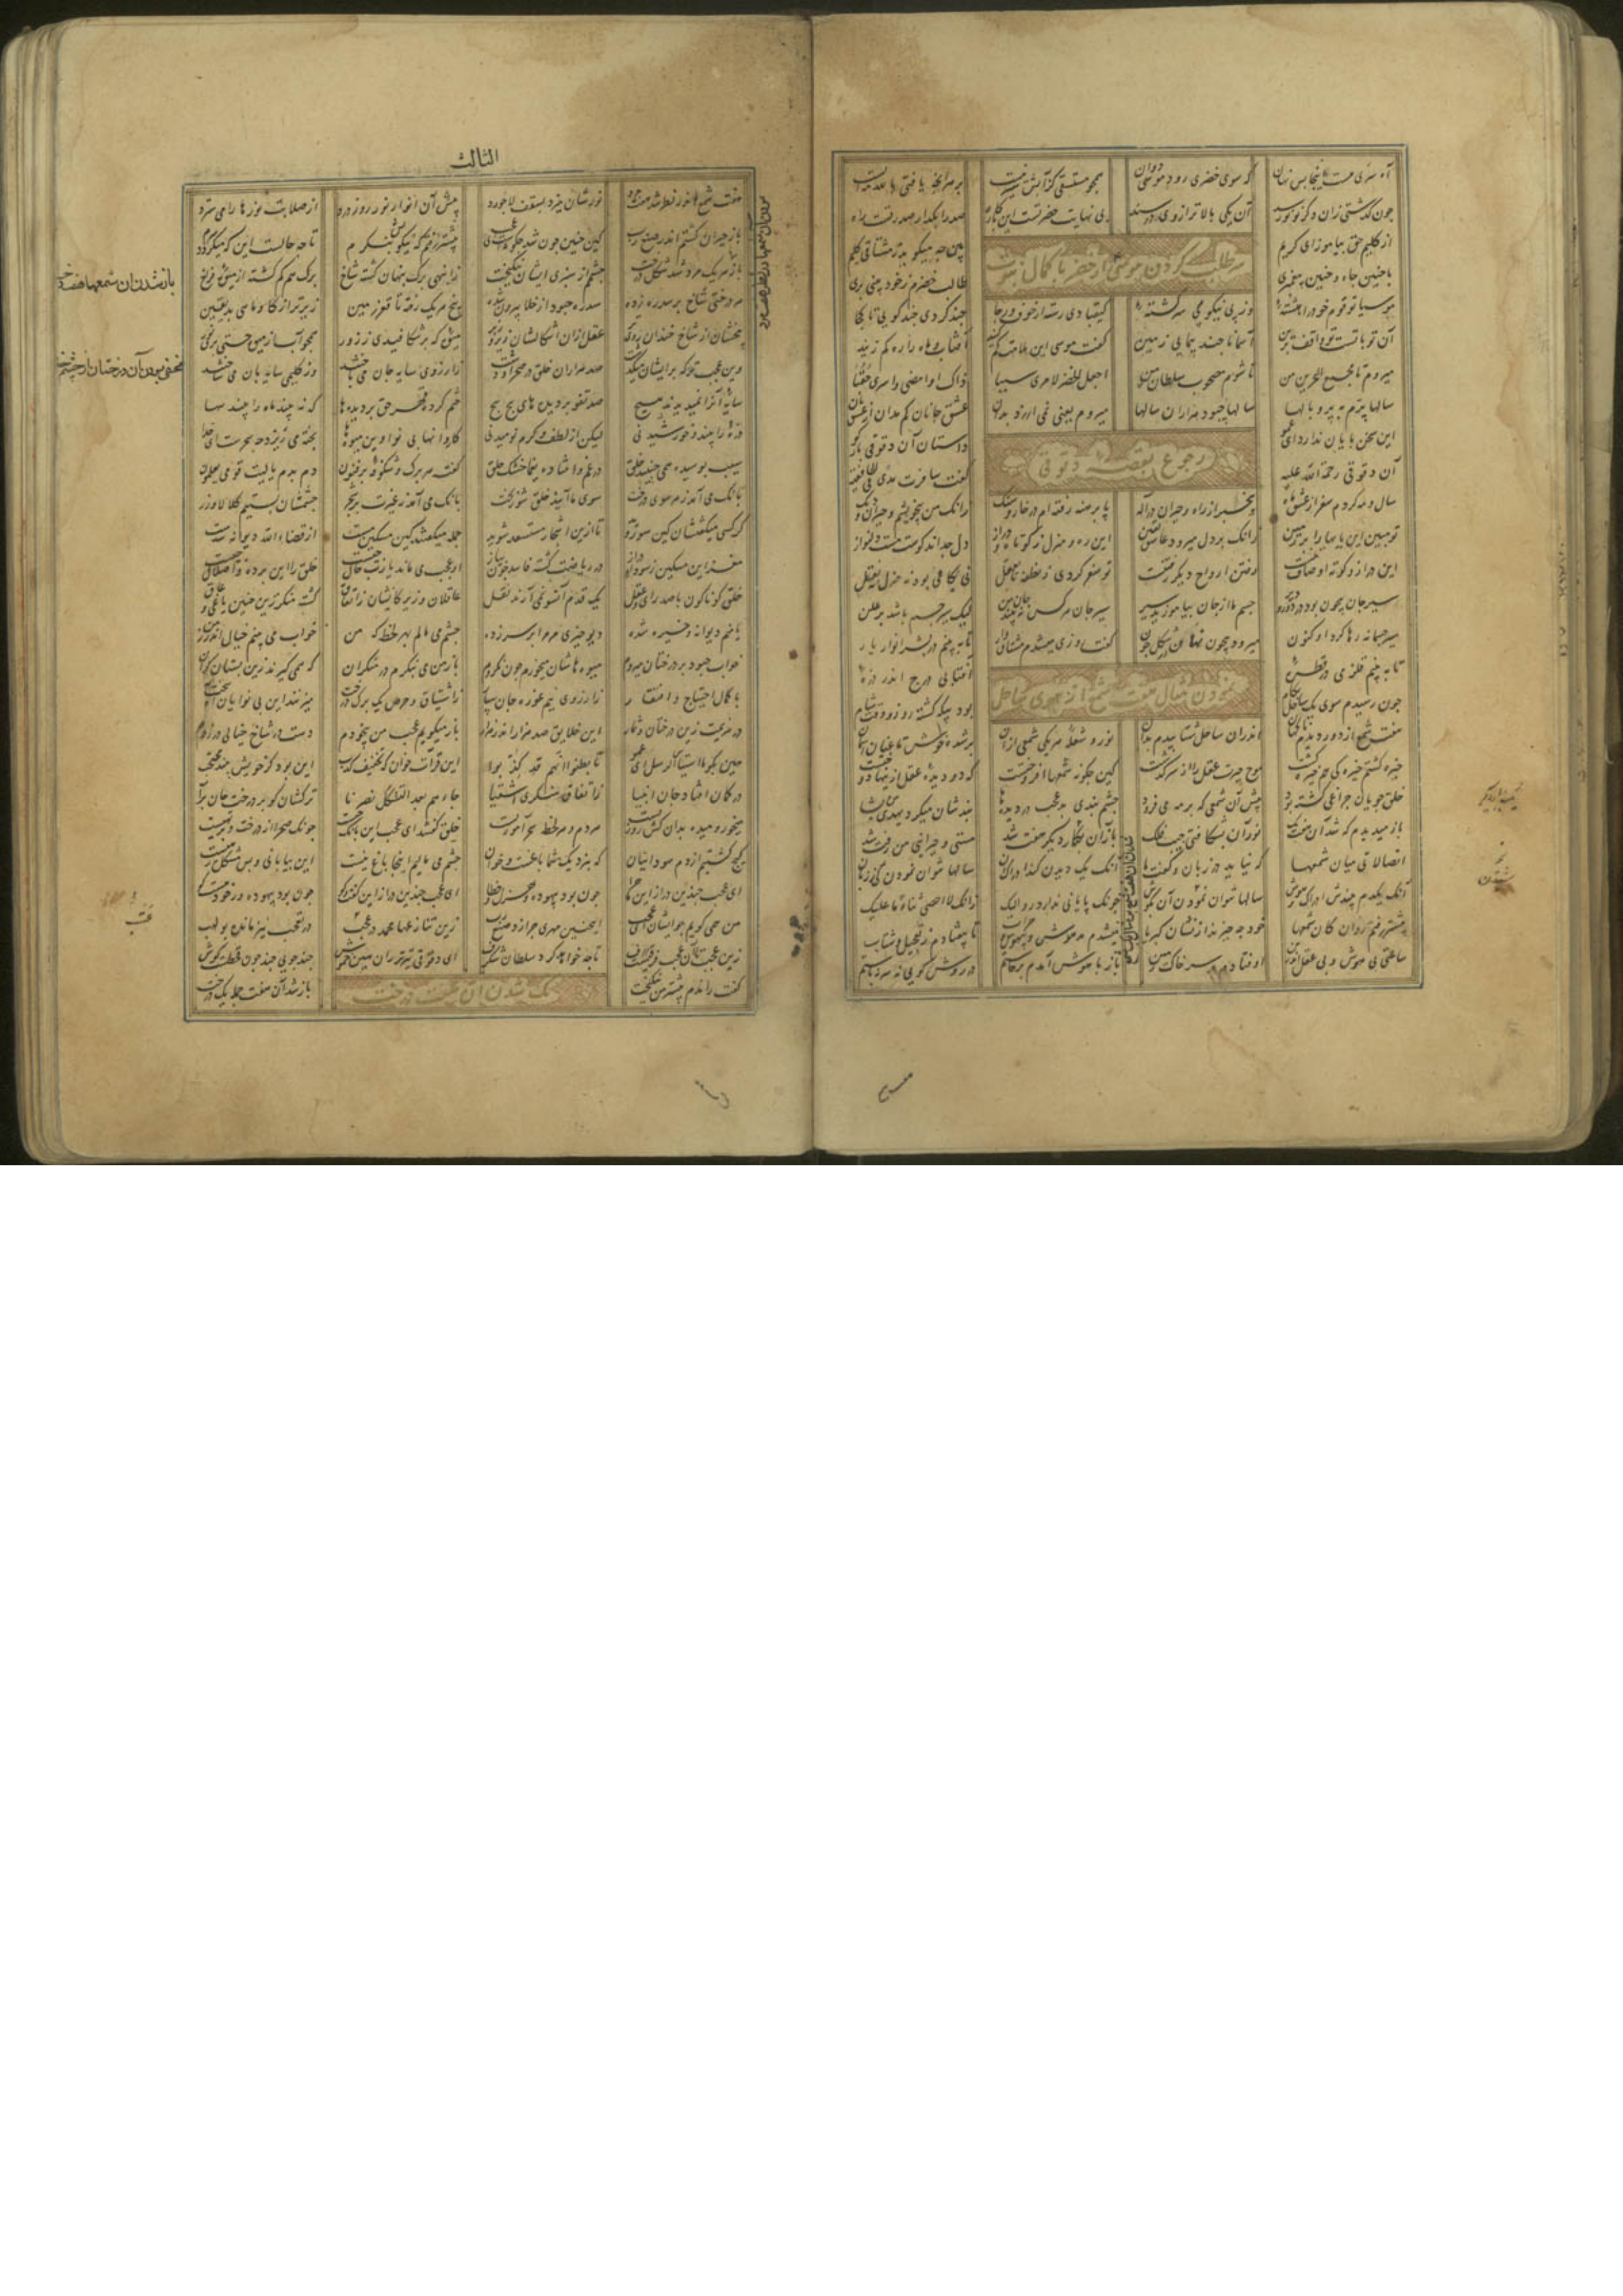 آه سری هست اینجا بس نهان که سوی خضری رود موسی دوان همچو مستسقی کز آبش سیر نیست بر هر آنچ یافتی بالله مه ایست
بی نهایت حضرتست این بارگاه صدر را بگذار صدر تست راه
سر طلب کردن موسی از خضر با کمال نبوت
از کلیم حق بیاموز ای کریم بین چه میگوید ز مشتاقی کلیم
با چنین جاه و چنین پیغمبری طالب خضرم ز خودبینی بری
موسیا تو قوم خود را هشته در پی نیکو پیی سرگشته کیقبادی رسته از خوف و رجا چند گردی چند کویی تا کجا
آن تو با تست و تو واقف برین آسمانا چند پیمایی زمین گفت موسی این ملامت کم کنید آفتاب و ماه را ره کم زنید
میروم تا مجمع البحرین من تا شوم مصحوب سلطان زمن اجعل الخضر لامری سببا ذاک او امضی و اسری حقبا
سالها پرم به پر و بالها سالها چبود هزاران سالها میروم یعنی نمی ارزد بدان عشق جانان کم مدان از عشق نان
این سخن پایان ندارد ای عمو داستان آن دقوقی باز گو
رجوع بقصهٔ دقوقی
آن دقوقی رحمة الله علیه گفت سافرت مدی فی خافقیه
سال و مه کردم سفر از عشق ماه بیخبر از راه و حیران در اله پا برهنه رفته ام در خار و سنگ زانک من بیخویشم و حیران و دنگ
تو مبین این پایها را بر زمین زانک بر دل میرود عاشق یقین این ره و منزل ز کوتاه و دراز دل چه داند کوست مست دلنواز
این دراز و کوته اوصاف تنست رفتن ارواح دیگر رفتنست تو سفر کردی ز نطفه تا بعقل نی بگامی بود نه منزل نه نقل
سیر جان بیچون بود در دور و دیر جسم ما از جان بیاموزید سیر سیر جان هر کس نبیند جان من لیک سیر جسم باشد بر علن
سیر جسمانه رها کرد او کنون میرود بیچون نهان در شکل چون گفت روزی میشدم مشتاق وار تا ببینم در بشر انوار یار
تا ببینم قلزمی در قطره آفتابی درج اندر ذره
چون رسیدم سوی یک ساحل بگام بود بیگه گشته روز و وقت شام
نمودن مثال هفت شمع از سوی ساحل
هفت شمع از دور دیدم ناگهان اندران ساحل شتابیدم بدان نور و شعله هر یکی شمعی از آن بر شده خوش تا عنان آسمان
خیره گشتم خیرگی هم خیره گشت موج حیرت عقل را از سر گذشت کین چگونه شمعها افروختست که دو دیده عقل ازینها دوختست
خلق جویان چراغی گشته بود پیش آن شمعی که بر مه می فزود چشم بندی بد عجب در دیدها بندشان میکرد یهدی من یشا
باز میدیدم که شد آن هفت یک نور آن بشکافتی جیب فلک باز آن یکبار دیگر هفت شد مستی و حیرانی من زفت شد
اتصالاتی میان شمعها که نیاید در زبان و گفتها آنک یک دیدن کند ادراک آن سالها نتوان نمودن از زبان
آنک یکدم بیندش ادراک هوش سالها نتوان نمودن آن بگوش چونک پایانی ندارد رو الیک زانک لا احصی ثناء ما علیک
پیشتر رفتم دوان کان شمعها خود چه چیزند از نشان کبریا میشدم مدهوش و خراب تا بیفتادم ز تعجیل و شتاب
ساعتی بی هوش و بی عقل اندرین اوفتادم بر سر خاک زمین باز با هوش آمدم برخاستم در روش گویی نه سر نه پاستم
الثالث
هفت شمع اندر نظر شد هفت مرد نورشان میزد بسقف لاجورد پیش آن انوار نور روز درد از صلابت نورها را می سترد
باز حیران گشتم اندر صنع رب کین چنین چون شد چگونست ای عجب پیشتر رفتم که نیکو بنگرم تا چه حالست این که میگردد سرم
باز هر یک مرد شد شکل درخت چشمم از سبزی ایشان نیکبخت زانبهی برگ پنهان گشته شاخ برگ هم گم گشته از میوه فراخ
هر درختی شاخ بر سدره زده سدره چبود از خلا بیرون شده بیخ هر یک رفته تا قعر زمین زیرتر از گاو و ماهی بد یقین
بیخشان از شاخ خندان روی تر عقل از آن اشکالشان زیر و زبر میوه که بر شکافیدی ز زور همچو آب از میوه جستی برق نور
مخفی بودن آن درختان از چشم خلق
وین عجب تر که برایشان میگذشت صد هزاران خلق در صحرا و دشت ز آرزوی سایه جان می باختند وز گلیمی سایه بان می ساختند
سایه آنرا نمیدیدند هیچ صد تفو بر دیدهای پیچ پیچ ختم کرده قهر حق بر دیدها که نبیند ماه را بیند سها
ذره را بیند و خورشید نی لیکن از لطف و کرم نومید نی کاروانها بی نوا وین میوها پخته می ریزد چه سحرست ای خدا
سیب پوسیده همی چیدند خلق درهم افتاده بیغما خشک حلق گفت هر برگ و شکوفه بر غصون دم بدم یا لیت قومی یعلمون
بانگ می آمد ز هر سوی درخت سوی ما آیید خلق شوربخت بانگ می آمد ز غیرت بر شجر چشمشان بستیم کلا لا وزر
گر کسی میگفتشان کین سو روید تا ازین اشجار مستسعد شوید جمله میگفتند کین مسکین مست از قضاء الله دیوانه شدست
مغز این مسکین ز سودای دراز وز ریاضت گشت فاسد چون پیاز او عجب می ماند یا رب حال چیست خلق را این پرده و اضلال چیست
خلق گوناگون با صد رای و عقل یک قدم آنسو نمی آرند نقل عاقلان و زیرکانشان ز اتفاق گشته منکر زین چنین باغی و عاق
یا منم دیوانه و خیره شده دیو چیزی مر مرا بر سر زده چشم می مالم بهر لحظه که من خواب می بینم خیال اندر زمن
خواب چبود بر درختان میروم میوهاشان میخورم چون نگروم باز من می بنگرم در منکران که همی گیرند زین بستان کران
با کمال احتیاج و افتقار ز آرزوی نیم غوره جان سپار ز اشتیاق و حرص یک برگ درخت میزنند این بی نوایان آه سخت
در هزیمت زین درختان و ثمار این خلایق صد هزار اندر هزار باز میگویم عجب من بیخودم دست در شاخ خیالی در زدم
هین بگو ما استیأس الرسل ای عمو تا بظنوا انهم قد کذبوا این قرائت خوان که تخفیف کذب این بود که خویش بیند محتجب
در گمان افتاد جان انبیا ز اتفاق منکری اشقیا جاءهم بعد التشکک نصرنا ترکشان گو بر درخت جان بر آ
میخور و میده بدان کش روزیست هر دم و هر لحظه سحر آموزیست خلق گفتند ای عجب این بانگ چیست چونک صحرا از درخت و بر تهیست
گیج گشتیم از دم سودائیان که بنزدیک شما باغست و خوان چشم می مالیم اینجا باغ نیست این بیابانی و بس مشکل رهیست
ای عجب چندین دراز این گفت و گو چون بود بیهوده ور خود هست کو
من همی گویم چو ایشان ای عجب این چنین مهری چرا زد صنع رب زین تنازعها محمد در عجب در تعجب نیز مانده بو لهب
زین عجب تا آن عجب فرقیست ژرف تا چه خواهد کرد سلطان شگرف ای دقوقی تیزتر ران هین خموش چند گویی چند چون قحطست گوش
یک شدن آن هفت درخت
گفت راندم پیشتر من نیکبخت باز شد آن هفت جمله یک درخت